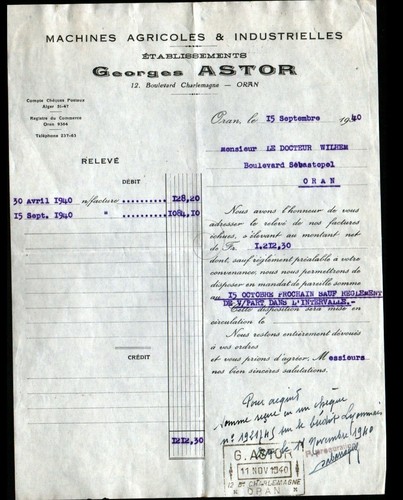 MACHINES AGRICOLES & INDUSTRIELLES
ÉTABLISSEMENTS
Georges ASTOR
12, Boulevard Charlemagne — ORAN
Compte Chèques Postaux
Alger 31-47
Registre du Commerce
Oran 9366
Téléphone 237-63
Oran, le 15 Septembre 1940
Monsieur LE DOCTEUR WILHEM
Boulevard Sébastopol
ORAN
RELEVÉ
DÉBIT
30 Avril 1940 n/facture .......... 128,20
15 Sept. 1940 " .......... 1084,10
Nous avons l'honneur de vous
adresser le relevé de nos factures
échues, s'élevant au montant net
de Fr. 1.212,30
dont, sauf règlement préalable à votre
convenance, nous nous permettrons de
disposer en mandat de pareille somme
au 15 OCTOBRE PROCHAIN SAUF REGLEMENT
DE V/PART DANS L'INTERVALLE.-
Cette disposition sera mise en
circulation le
Nous restons entièrement dévoués
à vos ordres
et vous prions d'agréer, Messieurs
nos bien sincères salutations.
CRÉDIT
1212,30
Pour acquit
somme reçue en un chèque
sur le Crédit Lyonnais
le 11 Novembre 1940
G. ASTOR
11 NOV 1940
12 Bd CHARLEMAGNE
ORAN